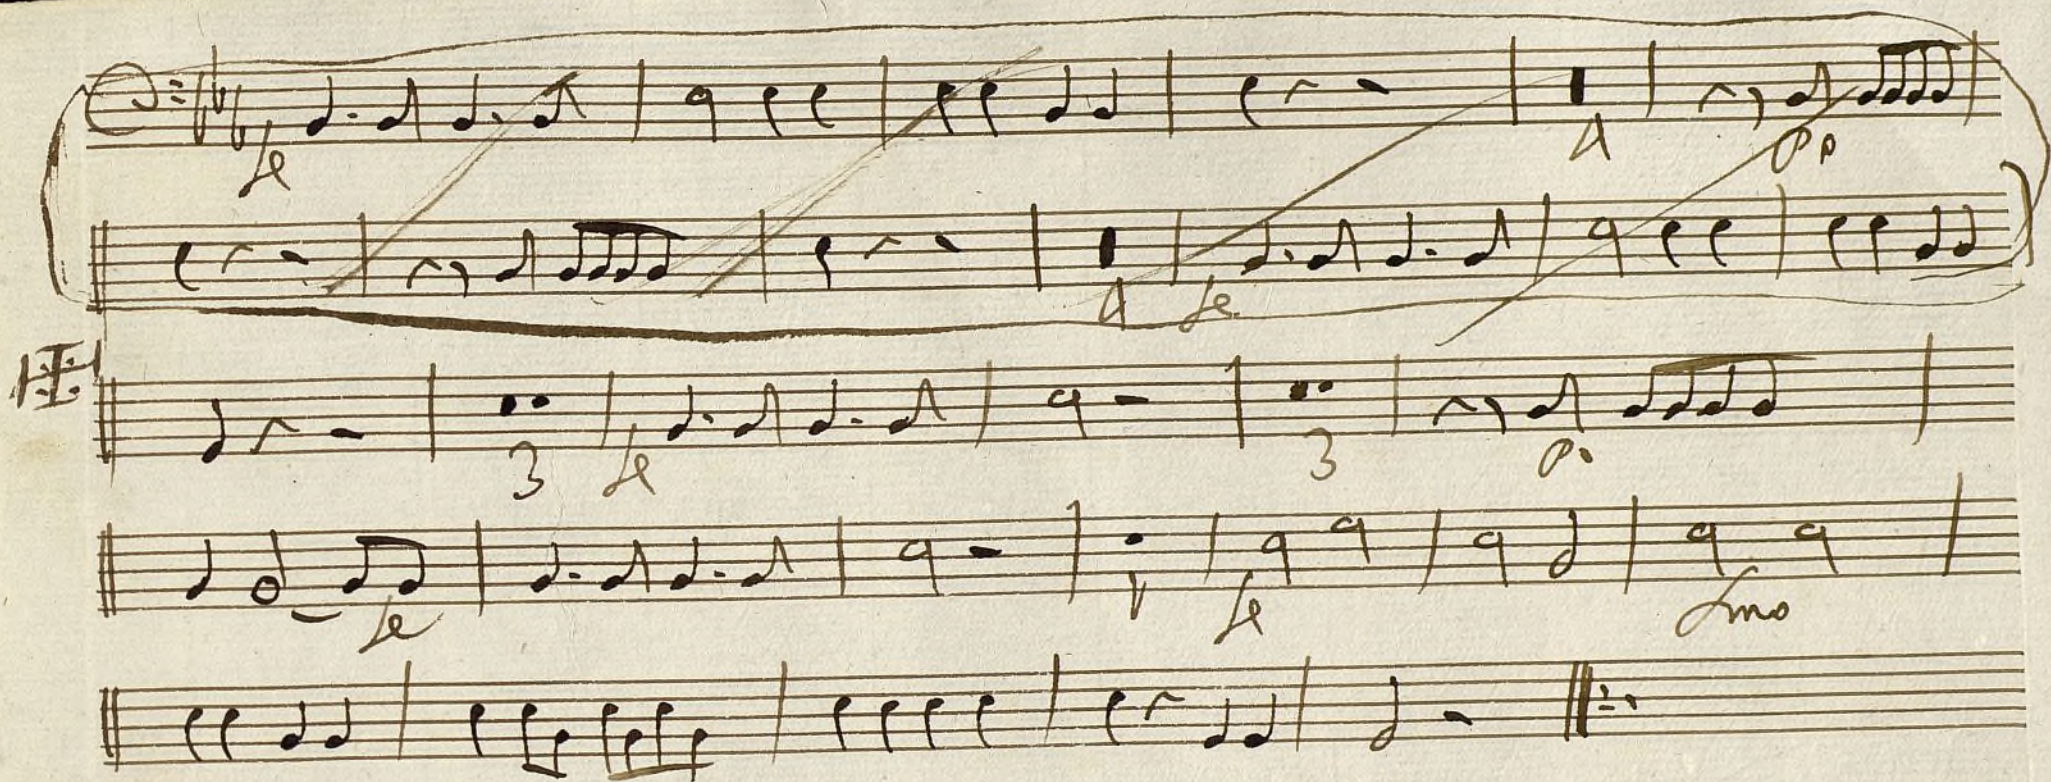 fe 4 pp
4 fe
3 fe 3 p.
fe 1 fe fmo